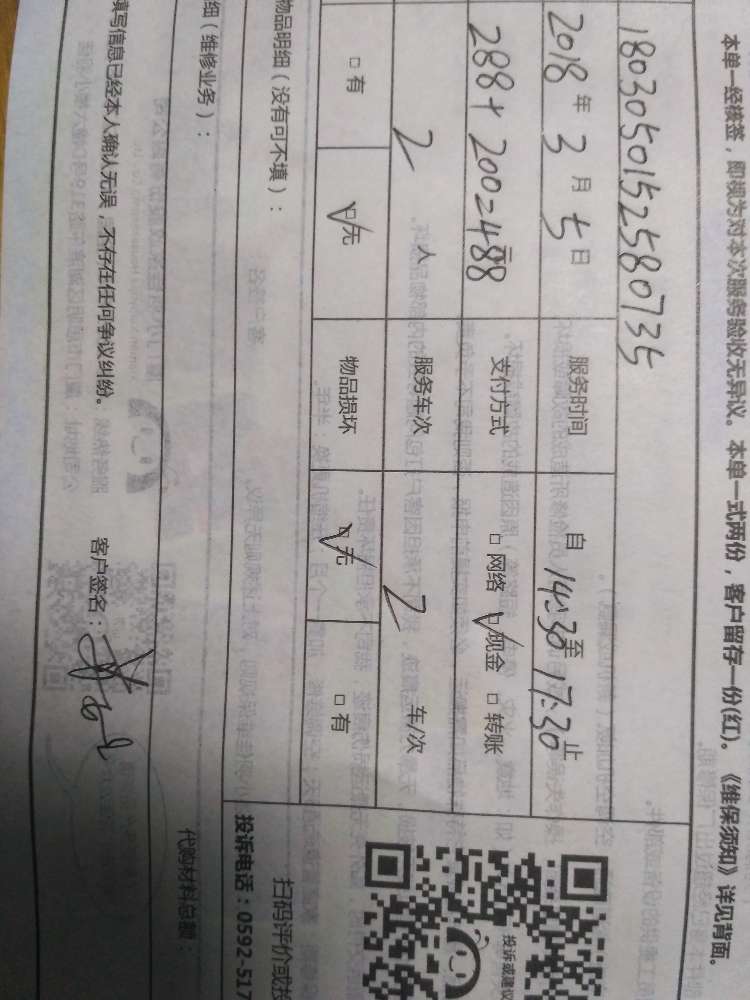 本单一经核签，即视为对本次服务验收无异议。本单一式两份，客户留存一份(红)。《维保须知》详见背面。
180305015258073５
2018 年 3 月 5 日 服务时间 自 14:30 至 17:30 止
288+200=488 元 支付方式 □ 网络 ☑ 现金 □ 转账
2 人 服务车次 2 车/次
□ 有 ☑ 无 物品损坏 ☑ 无 □ 有
物品明细（没有可不填）：
投诉或建议
扫码评价或投
投诉电话：0592-517
细（维修业务）：
代购材料总额：
填写信息已经本人确认无误，不存在任何争议纠纷。 客户签名：